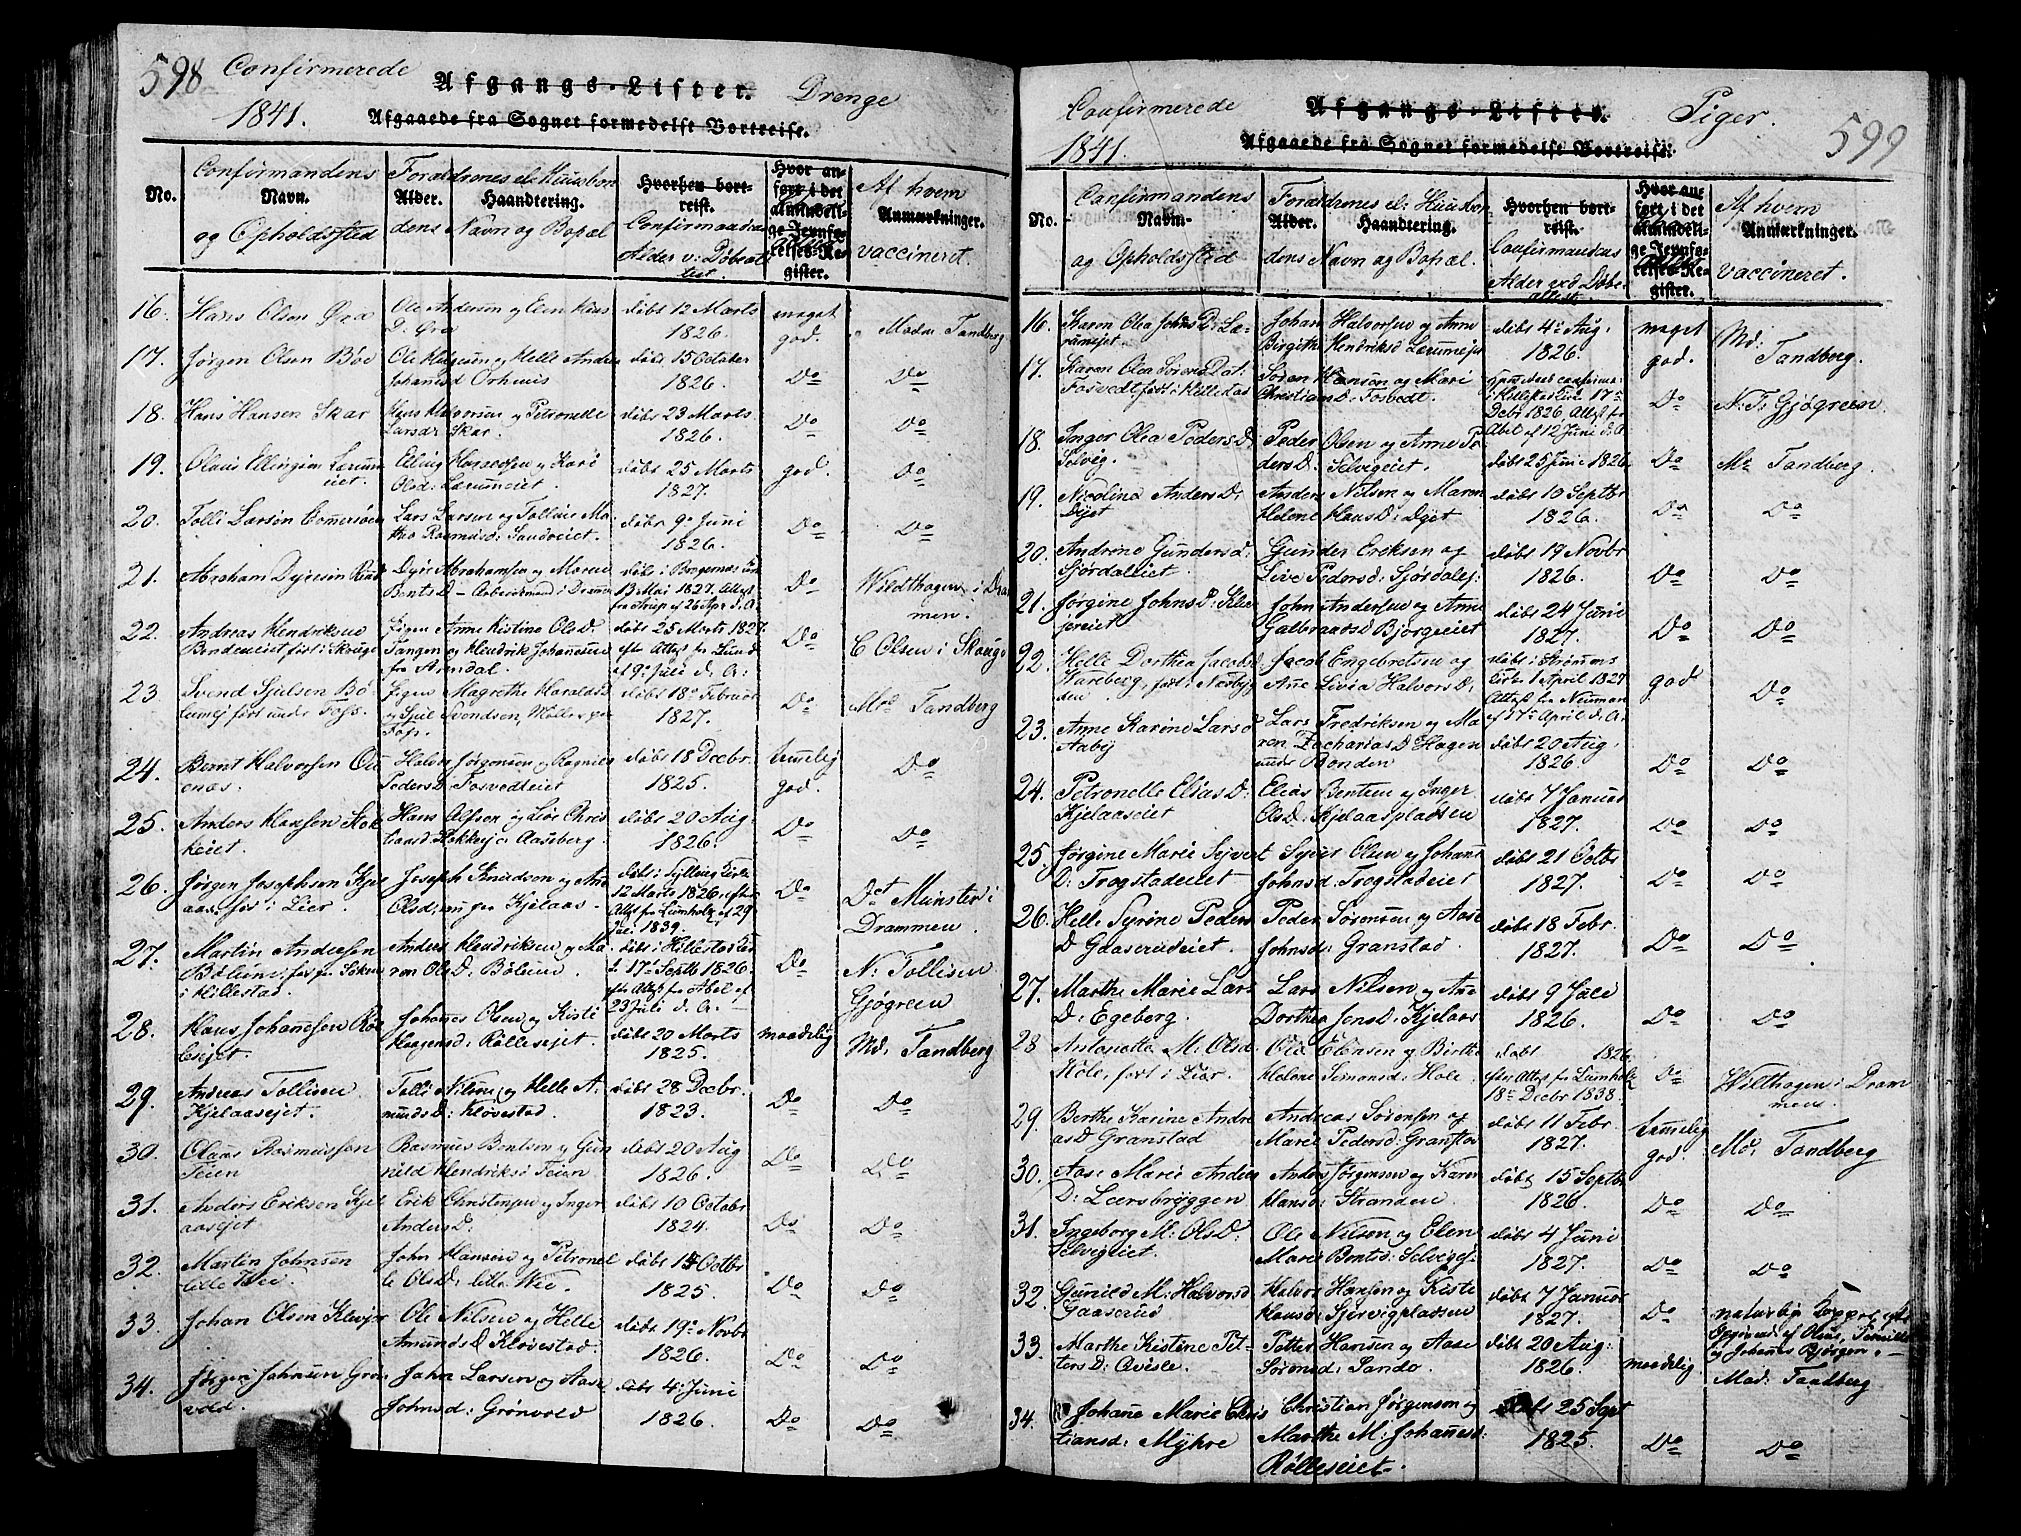 598 Confirmerede 1841. Drenge
Afgangs-Lister.
Afgaaede fra Sognet formedelst Bortreise.
No. Confirmandens Navn. og Opholdssted
Forældrenes el. Huusbondens Navn og Bopæl
Alder. Haandtering.
Hvorhen bortreist.
Confirmandens Alder v: Døbeattest
Hvor anført i det almindelige Jevnførelses-Register.
Af hvem vaccineret.
Anmærkninger.
16. Hans Olsen Øra
Ole Andersen og Elen
D. Øra
døbt 12 Marts 1826.
meget god.
Madm Tandberg
17. Jørgen Olsen Böe
Ole Helgesen og Helle
Johannesd
døbt 15 October 1826.
Do
Do
18. Hans Hansen Skar
Hans Halvorsen og Petronelle
Larsdr Skar.
døbt 23 Marts 1826.
Do
Do
19. Olaus Ellingsen Lerumeiet.
Elling Haraldsen og Kari
Olsd: Lerumeiet.
døbt 25 Marts 1827.
god.
Do
20. Tolli Larsen
Lars Larsen og Tolline
Rasmusd: Sandveiet.
døbt 9de Juni 1826.
Do
Do
21. Abraham Dyresen
Dyre Abrahamsen og Maren
Bents D - Arbeidsmand i Drammen
døbt i Bragernes
13 Mai 1827. Attest
fra Arup af 26 Apr d. A.
Do
Wildthagen i Drammen.
22. Andreas Hendriksen
Bondeneiet født i Skouge
Pigen Anne Kistine Ols D.
Tangen og Hendrik Johannesen
fra Arendal.
døbt 25 Marts 1827.
efter Attest fra Lund
af 19de Juli d. A:
Do
C Olsen i Skouge
23 Svend Sjulsen
født under Foss.
Pigen Magrethe Haraldsd
og Sjul Svendsen,
Foss.
døbt 18de Februar 1827.
Do
Md Tandberg
24. Bernt Halvorsen
Halvor Jørgensen og Ragnild
Peders D. Fosvedteiet
døbt 18 Decbr 1825.
temelig god.
Do
25. Anders Hansen Stokkeiet.
Hans Olsen og Live Christiansd
Aaseberg.
døbt 20 Aug: 1826.
Do
Do
26. Jørgen Josephsen Kjelaas, født i Lier.
Joseph Knudsen og Anne
Olsd, nu paa Kjelaas.
døbt i Sylling Kirke
12 Marts 1826 efter
Attest fra Lumholz af 29
Juli 1839.
Do
Dot Munster i Drammen.
27. Martin Andersen
Bølum, født fra
i Hillestad.
Anders Hendriksen og Maren
Ols D. Bølum.
døbt i Hillestad
17de Septb 1826.
efter Attest fra Abel af
23 Juli d. A.
Do
N: Tollisen Gjøgreen
28. Hans Johannesen
Johannes Olsen og Kisti
Haagensd: Röllesejet.
døbt 20 Marts 1825.
maadelig
Md: Tandberg
29. Andreas Tollisen
Kjelaasejet.
Tolli Nilsen og Helle
Amundsd: Kløvestad.
døbt 28 Decbr. 1823.
Do
Do
30. Claus Rasmussen
Teien
Rasmus Bentsen og Gunnild
Hendriks: Teien
døbt 20 Aug 1826.
Do
Do
31. Anders Eriksen Kjelaasejet
Erik Christensen og Inger
Anders D:
døbt 10 Octobr 1824.
Do
Do
32. Martin Johnsen
lille Wee.
John Hansen og Petronelle
Ols D: lille Wee.
døbt Octbr 1825.
Do
Do
33. Johan Olsen
Ole Nilsen og Helle
Amunds D. Kløvestad.
døbt 19de Novbr 1826.
Do
Do
34. Jørgen Johnsen Grønvold.
John Larsen og Aase
Johnsd: Grönvold
døbt 4de Juni 1826.
Do
Do
Confirmerede 1841. Piger. 599
Afgangs-Lister.
Afgaaede fra Sognet formedelst Bortreise.
No. Confirmandens Navn. og Opholdssted
Forældrenes el: Huusbondens Navn og Bopæl.
Alder. Haandtering.
Hvorhen bortreist.
Confirmandens Alder ved Døbeattest.
Hvor anført i det almindelige Jevnførelses-Register.
Af hvem vaccineret.
Anmærkninger.
16. Karen Olea Johns D: Lerumejet.
Johan Halvorsen og Anne
Birgithe Hendriksd Lerumejet
døbt 4de Aug: 1826.
meget god.
Md: Tandberg.
17. Karen Olea Sørens Dat:
Fosvedt født i Hillestad
Søren Hansen og Mari
Christians D. Fosvedt.
17de
Decbr 1826 Attest fra
Abel af 12 Juni d. A
Do
N: T: Gjøgreen.
18. Inger Olea Peders D.
Selvig.
Peder Olsen og Anne Peders D. Selvigeiet.
døbt 25 Juni 1826.
Do
Md Tandberg.
19. Nicoline Anders D:
Döjet
Anders Nilsen og Maren
Helene Hans D: Döjet
døbt 10 Septbr 1826.
Do
Do
20. Andrine Gundersd:
Sjördaleiet
Gunder Eriksen og
Live Pedersd: Sjørdalej:
døbt 19 Novbr 1826.
Do
Do
21. Jørgine Johns D:
John Andersen og Anne
Galbraandsd Bjørgeeiet
døbt 24 Juni 1827.
Do
Do
22. Helle Dorthea Jacobsd
Hareberg, født i
Jacob Engebretsen og
Ane Livia Halvors D.
døbt i Strømms
Kirke 1 April 1827
Attest fra Neuman
af 17de April d. A.
god
Do
23. Anne Karine Larsd
Aaby
Lars Fredriksen og Maren
Zacharias D. Hagen
under Bonden
døbt 20 Aug. 1826.
Do
Do
24. Petronelle Elias D:
Kjelaaseiet
Elias Bentsen og Inger
Ols D. Kjelaaspladsen
døbt 7 Januar 1827.
Do
Do
25. Jørgine Marie Sejverts
D: Trogstadeiet
Syvert Olsen og Johanne
Johnsd: Trogstadeiet
døbt 21 Octbr 1827.
Do
Do
26. Helle Syrine Peders
D. Gaaserudeiet.
Peder Sørensen og Aase
Johnsd: Granstad.
døbt 18 Febr. 1827.
Do
Do
27. Marthe Marie Lars
D: Egeberg.
Lars Nilsen og Ane
Dorthea Jens D: Kjelaas
døbt 9 Juli 1826.
Do
Do
28 Antonette M: Olsd
Hole, født i Lier.
Ole Elensen og Birthe
Helene Simonsd: Hole.
døbt 1826
efter Attest fra Lumholz
18de Decbr 1838.
Do
Willhagen i Drammen.
29. Berthe Karine Andreas D Granstad
Andreas Sørensen og
Marie Pedersd: Granstad
døbt 11 Febr. 1827.
temelig god
Md: Tandberg
30. Aase Marie Anders
D: Leersbryggen
Anders Jørgensen og Karen
Hansd: Stranden
døbt 15 Septbr 1826.
Do
Do
31. Ingeborg M: Ols D:
Selvigeiet.
Ole Nilsen og Elen
Marie Bentsd: Selvigej:
døbt 4 Juni 1827.
Do
Do
32. Gunild M: Halvorsd
Gaaserud
Halvor Hansen og Kisti
Hansd: Sjervigpladsen
døbt 7 Januar 1827.
Do
naturlig Kopper, efter
Opgivende af
og Johanes Bjørgen.
33. Marthe Kistine Petters D: Qvisle.
Petter Hansen og Aase
Sørensd: Sando.
døbt 20 Aug: 1826.
maadelig
Mad: Tandberg
34. Johane Marie Christiansd: Myhre
Christian Jørgensen og
Marthe M: Johanesd:
Rølleseiet.
døbt 25 Sept 1825.
Do
Do